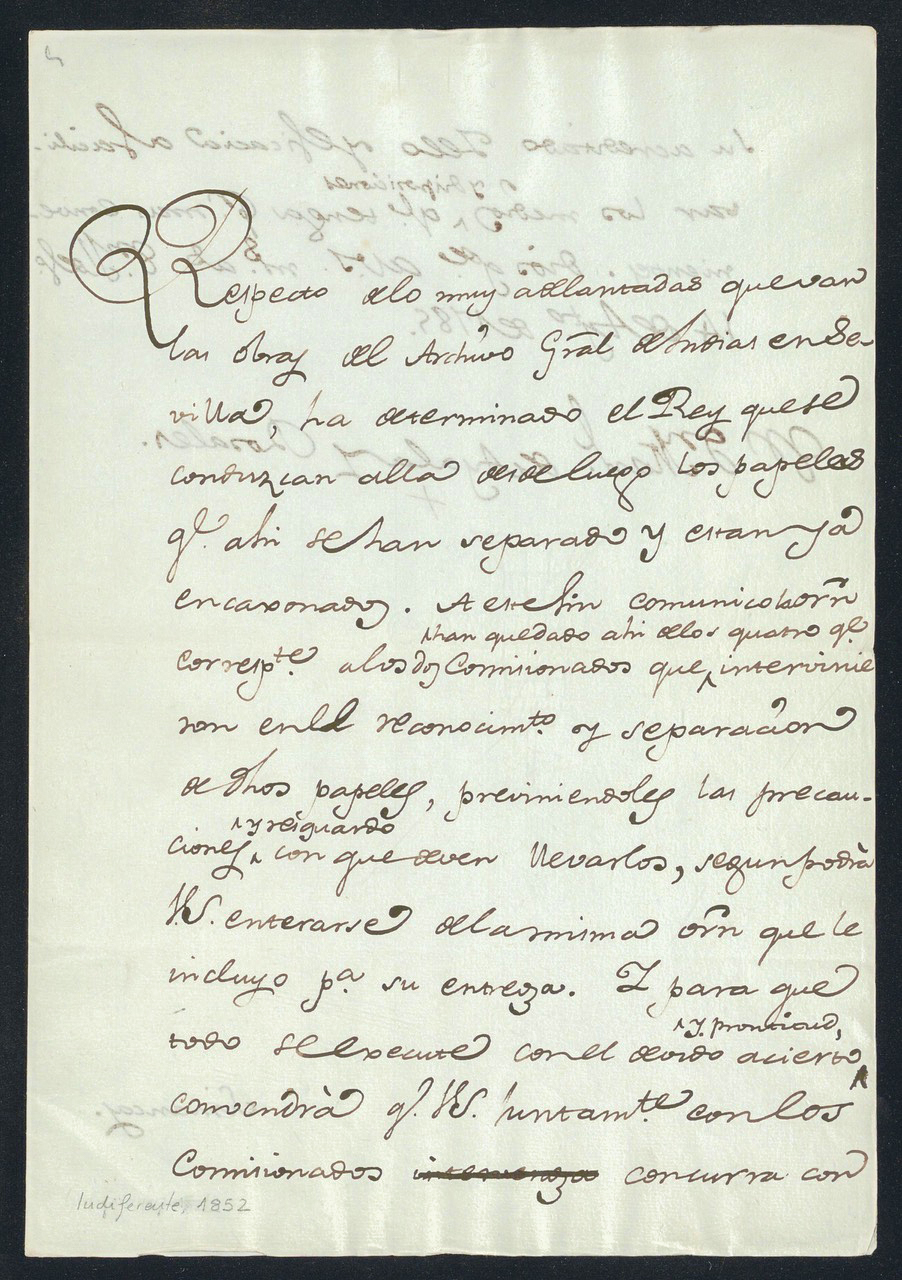 Respecto de lo muy adelantadas que van
las obras del Archivo Grãl de Indias en Se-
villa, ha determinado el Rey que se
conduzcan alla desde luego los papeles
q.e ahi se han separado y estan ya
encaxonados. A este fin comunico la orñ
han quedado ahi de los quatro q.e
corresp.te a los dos Comisionados que intervinie
ron en el reconocim.to y separacion
de dhos papeles, previniendoles las precau-
y resguardo
ciones, con que deven llevarlos, segun podrà
V.S. enterarse de la misma orñ que le
incluyo p.a su entrega. I para que
y prontitud,
todo se execute con el devido acierto
convendrà q.e V.S. juntam.te con los
Comisionados intervenga concurra con
Indiferente, 1852